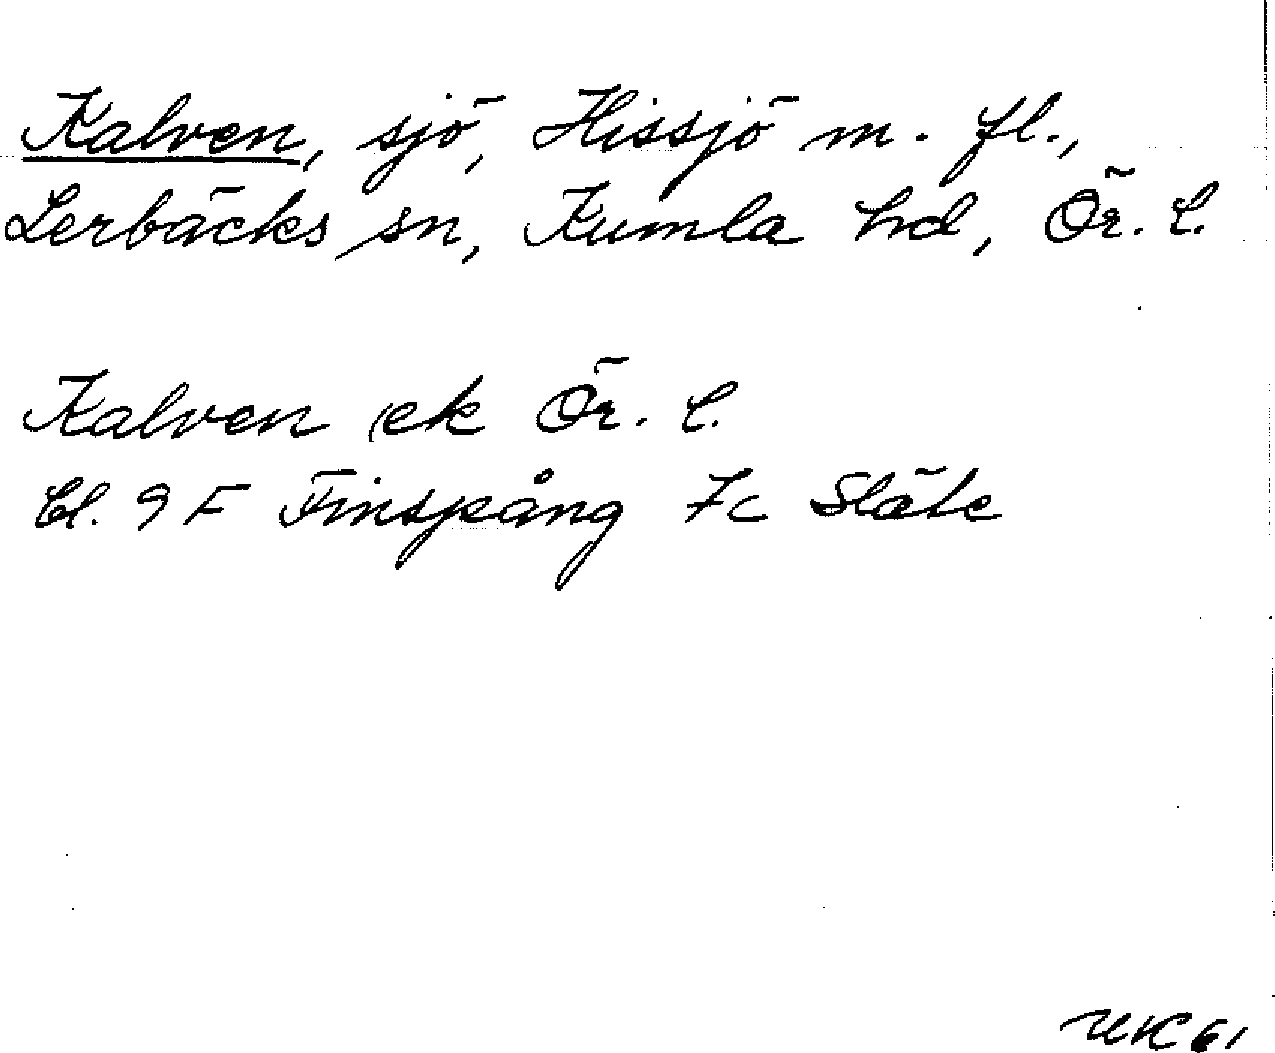 Kalven, sjö, Hissjö m. fl.,
Lerbäcks sn, Kumla hd, Ör. l.
Kalven ek Ör. l.
bl. 9 F Finspång 7c Släle
UK 61